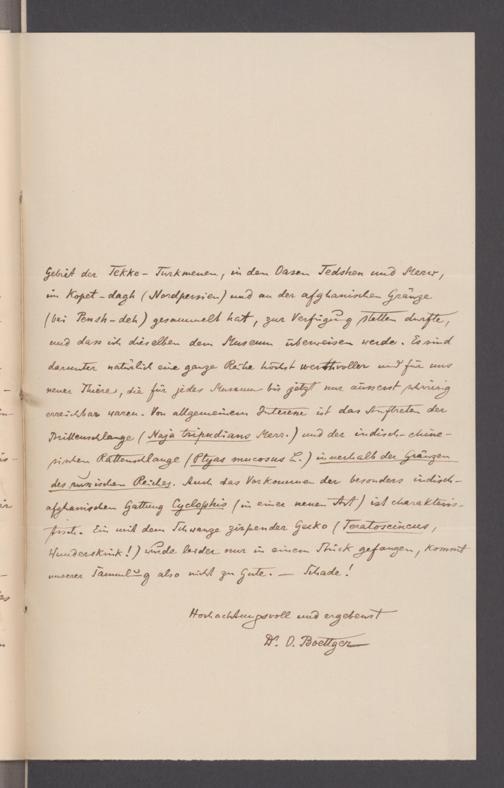 Gebiet der Tekke-Turkmenen, in den Oasen Tedshen und Merw,
im Kopet-dagh (Nordpersien) und an der afghanischen Gränze
(bei Pensh-deh) gesammelt hat, zur Verfügung stellen durfte,
und dass ich dieselben dem Museum überweisen werde. Es sind
darunter natürlich eine ganze Reihe höchst werthvoller und für uns
neuer Thiere, die für jedes Museum bis jetzt nur äusserst schwierig
erreichbar waren. Von allgemeinem Interesse ist das Auftreten der
Brillenschlange (Naja tripudians Merr.) und der indisch-chine-
sischen Rattenschlange (Ptyas mucosus L.) innerhalb der Gränzen
des russischen Reiches. Auch das Vorkommen der besonders indisch-
afghanischen Gattung Cyclophis (in einer neuen Art) ist charakteris-
tisch. Ein mit dem Schwanze zirpender Gecko (Teratoscincus,
Wunderskink!) wurde leider nur in einem Stück gefangen, kommt
unserer Sammlung also nicht zu Gute. — Schade!
Hochachtungsvoll und ergebenst
Dr. O. Boettger